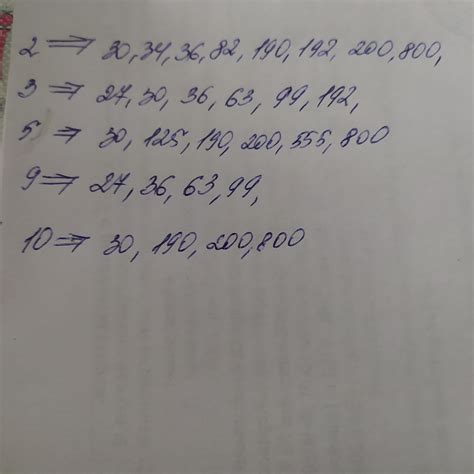 2 ⇒ 30, 34, 36, 82, 190, 192, 200, 800,
3 ⇒ 27, 30, 36, 63, 99, 192,
5 ⇒ 30, 125, 190, 200, 555, 800
9 ⇒ 27, 36, 63, 99,
10 ⇒ 30, 190, 200, 800